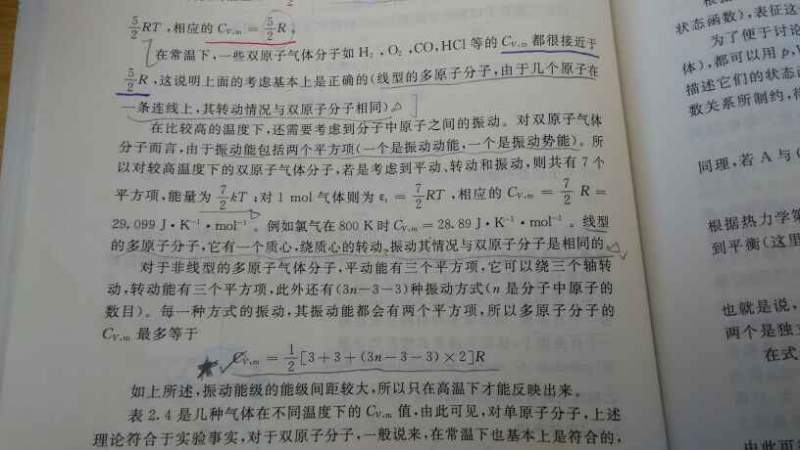 5/2 RT，相应的 C_V,m = 5/2 R。
在常温下，一些双原子气体分子如 H₂，O₂，CO，HCl 等的 C_V,m 都很接近于
5/2 R，这说明上面的考虑基本上是正确的（线型的多原子分子，由于几个原子在
一条连线上，其转动情况与双原子分子相同）。
在比较高的温度下，还需要考虑到分子中原子之间的振动。对双原子气体
分子而言，由于振动能包括两个平方项（一个是振动动能，一个是振动势能）。所
以对较高温度下的双原子气体分子，若是考虑到平动、转动和振动，则共有 7 个
平方项，能量为 7/2 kT；对 1 mol 气体则为 ε_t = 7/2 RT，相应的 C_V,m = 7/2 R =
29.099 J·K⁻¹·mol⁻¹。例如氯气在 800 K 时 C_V,m = 28.89 J·K⁻¹·mol⁻¹。线型
的多原子分子，它有一个质心，绕质心的转动、振动其情况与双原子分子是相同的。
对于非线型的多原子气体分子，平动能有三个平方项，它可以绕三个轴转
动，转动能有三个平方项，此外还有(3n−3−3)种振动方式(n 是分子中原子的
数目)。每一种方式的振动，其振动能都会有两个平方项，所以多原子分子的
C_V,m 最多等于
C_V,m = 1/2[3+3+(3n−3−3)×2]R
如上所述，振动能级的能级间距较大，所以只在高温下才能反映出来。
表 2.4 是几种气体在不同温度下的 C_V,m 值，由此可见，对单原子分子，上述
理论符合于实验事实，对于双原子分子，一般说来，在常温下也基本上是符合的，
状态函数），表征这
为了便于讨论
体），都可以用 p，V
描述它们的状态
数关系所制约，
同理，若 A 与
根据热力学
到平衡（这里
也就是说，
两个是独立
在式
由此可